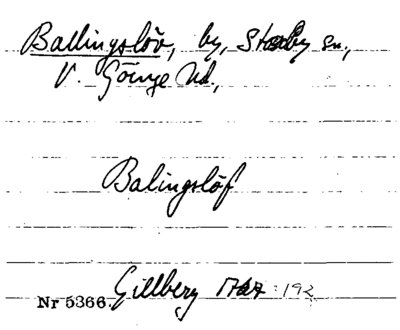 Ballingslöv, by, Stoby sn.,
V. Göinge hd.,
Balingslöf
Gillberg 1767 : 192
Nr 5366.